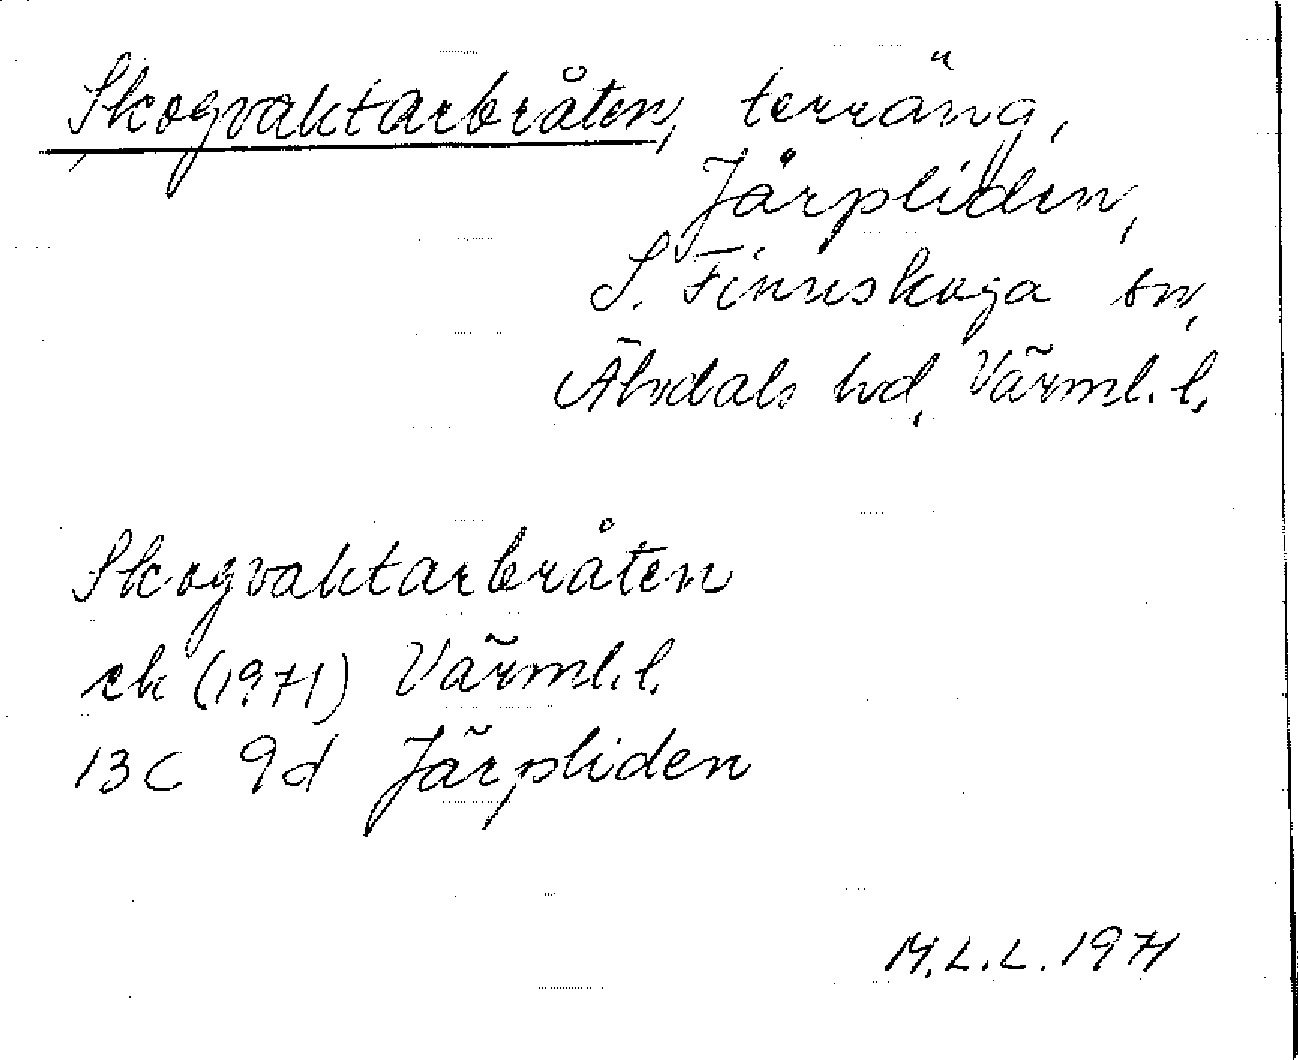 Skogvaktarbråten, terräng,
Järpliden,
S. Finnskoga sn,
Älvdals hd, Värml. l.
Skogvaktarbråten
ek (1971) Värml. l.
13C 9d Järpliden
M.L.L. 1971